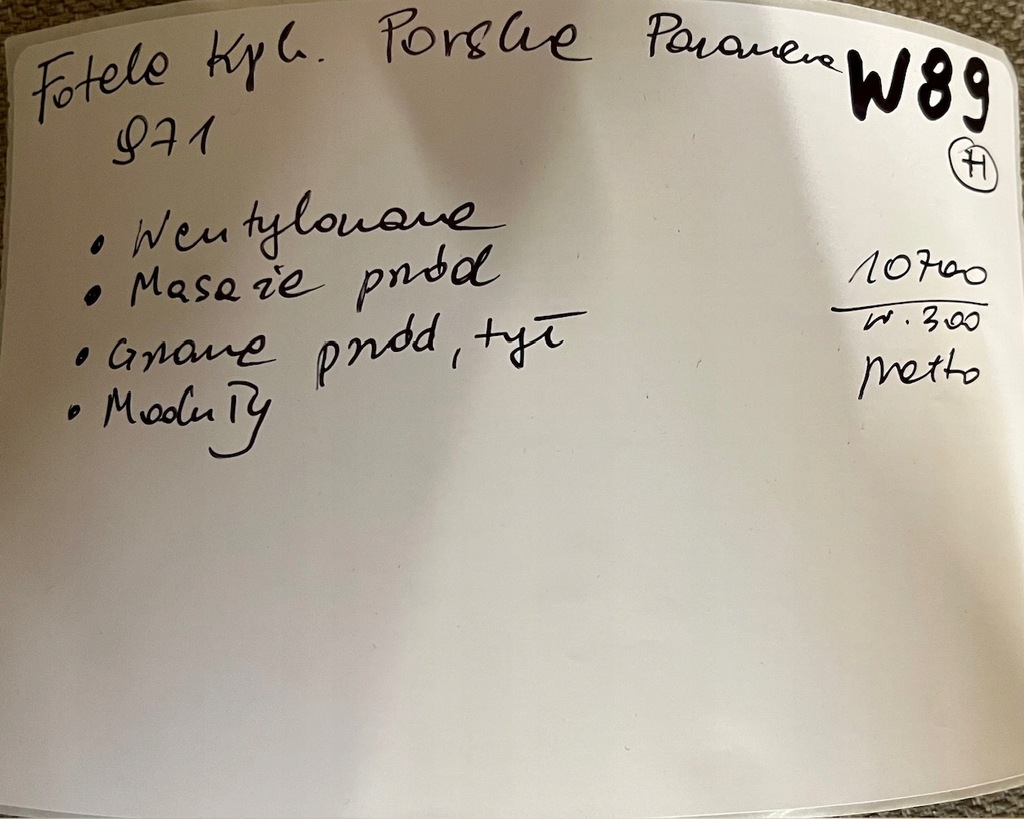 Fotele Kpl. Porshe Panamera W89
971 H
• Wentylowane
• Masaże przód
• Grzane przód, tył
• Moduły
10700
w. 300
netto